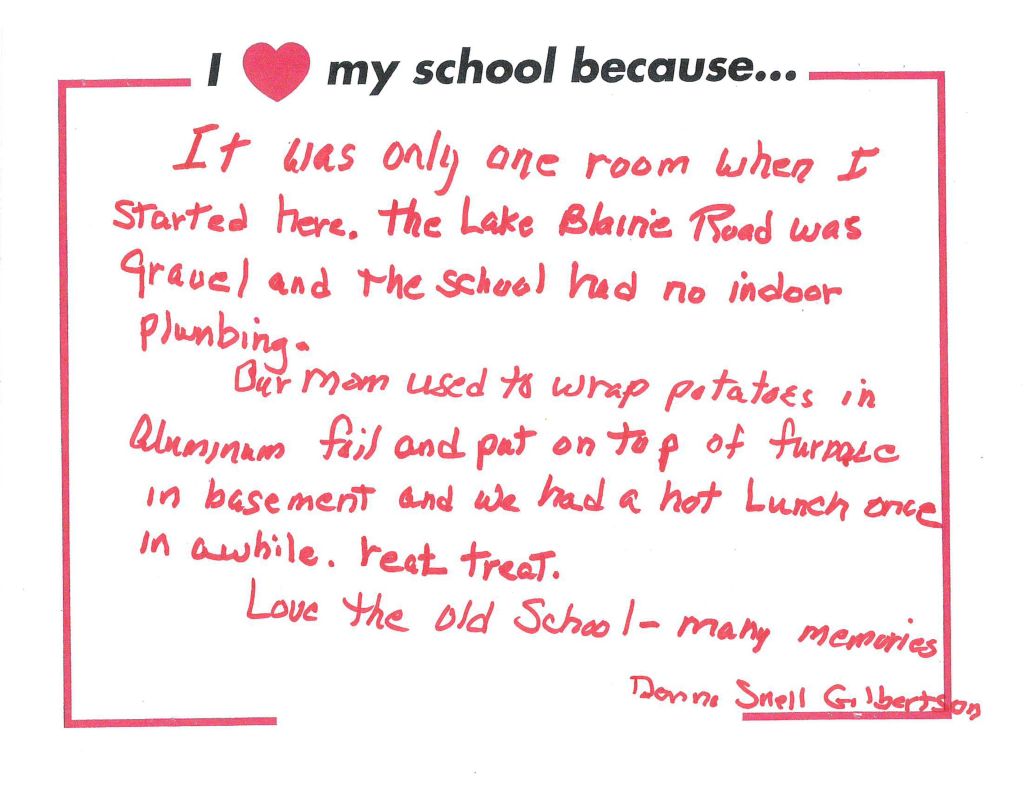 I ❤ my school because...
It was only one room when I
started here. The Lake Blaine Road was
gravel and the school had no indoor
plumbing.
Our mom used to wrap potatoes in
aluminum foil and put on top of furnace
in basement and we had a hot Lunch once
in awhile. real treat.
Love the old School - many memories
Snell Gilbertson